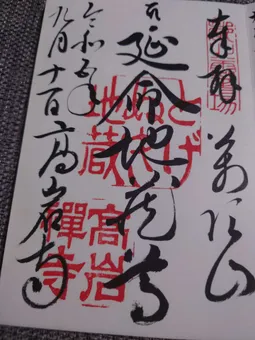 奉拝 萬頂山
延命地蔵尊
令和五年
九月十一日 高岩寺
とげぬき
地蔵
高岩
禪寺